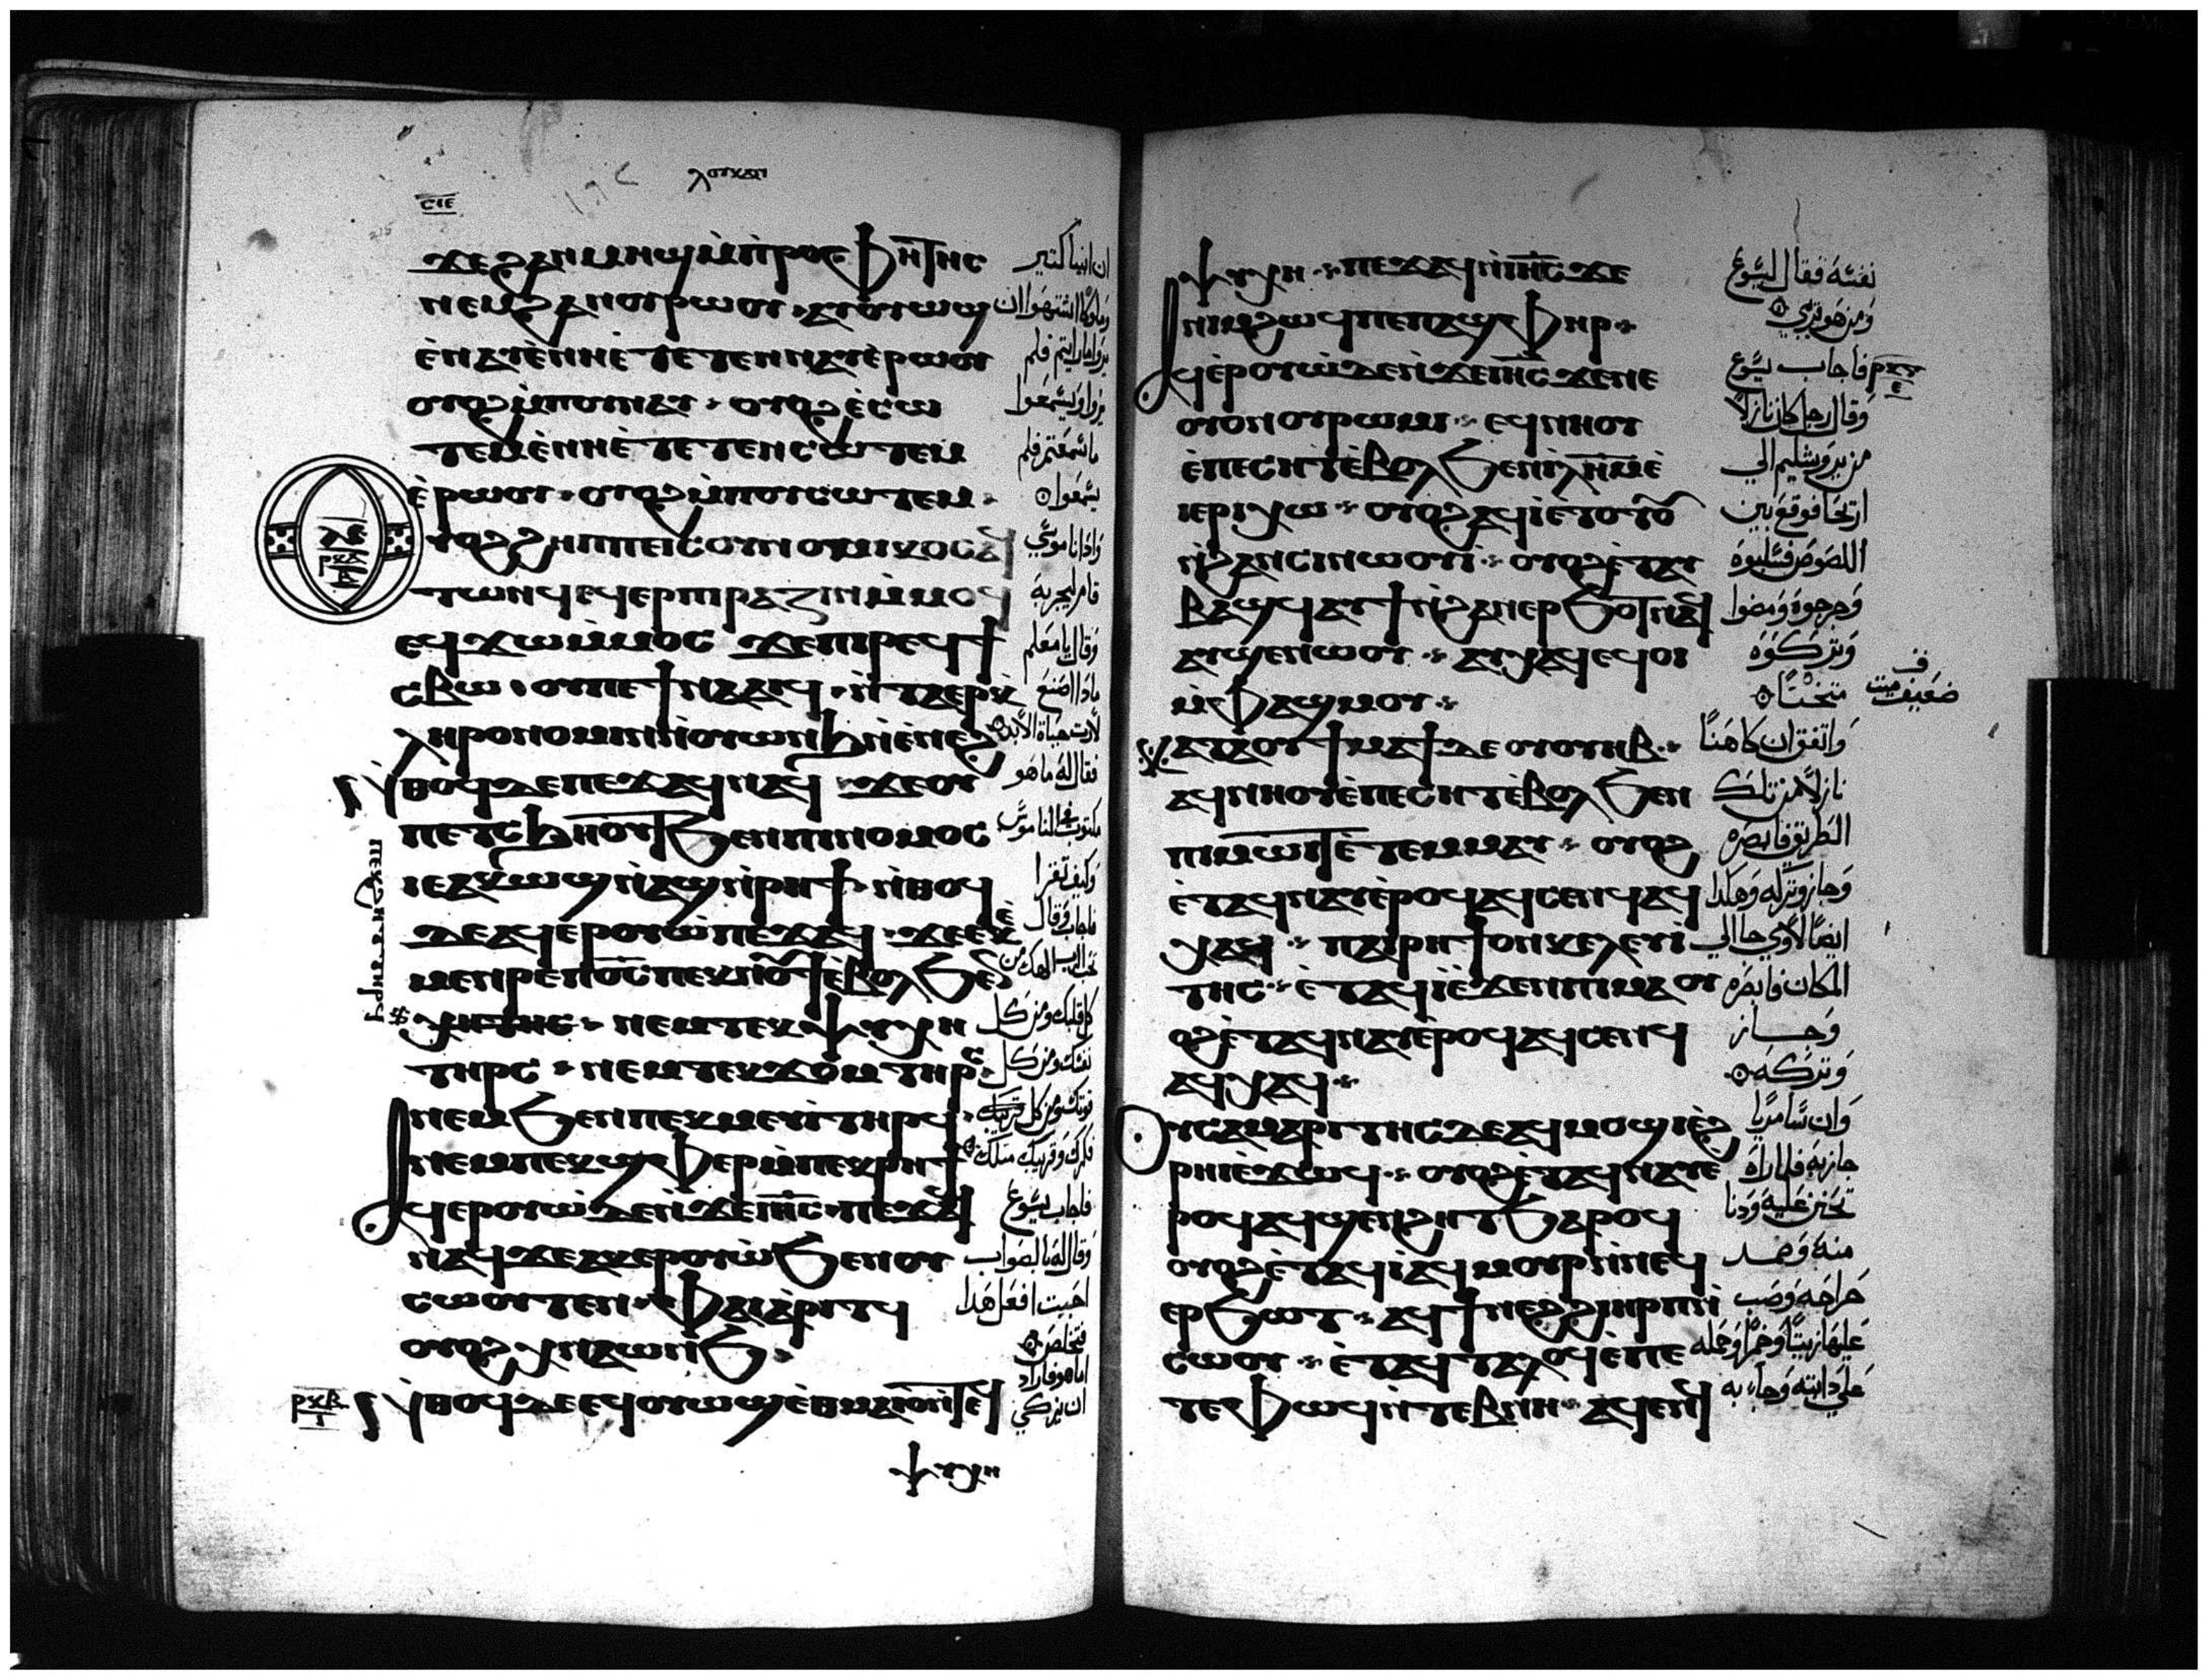 ⲗⲟⲩⲕⲁⲛ
ⲥⲓⲉ
ϫⲉϩⲁⲛⲙⲏϣⲙ̀ⲡⲣⲟⲫⲏⲧⲏⲥ
ⲛⲉⲙϩⲁⲛⲟⲩⲣⲱⲟⲩ ⲁⲩⲟⲩⲱϣ
ⲉ̀ⲛⲁⲩⲉ̀ⲛⲛⲏⲉ̀ⲧⲉⲧⲉⲛⲛⲁⲩⲉ̀ⲣⲱⲟⲩ
ⲟⲩⲟϩⲙ̀ⲡⲟⲩⲛⲁⲩ ⲟⲩⲟϩⲉ̀ⲥⲱ
ⲧⲉⲙⲉ̀ⲛⲛⲏⲉ̀ⲧⲉⲧⲉⲛⲥⲱⲧⲉⲙ
ⲉ̀ⲣⲱⲟⲩ ⲟⲩⲟϩⲙ̀ⲡⲟⲩⲥⲱⲧⲉⲙ
ⲗⲉ
ⲣⲕⲁ
ⲟⲩⲟϩϩⲏⲡⲡⲉⲓⲥⲟⲩⲛⲟⲙⲓⲕⲟⲥⲁϥ
ⲧⲱⲛϥⲉϥⲉⲣⲡⲓⲣⲁⲍⲓⲛⲙ̀ⲙⲟϥ
ⲉϥϫⲱⲙ̀ⲙⲟⲥ ϫⲉⲡⲓⲣⲉϥϯ
ⲥⲃⲱ ⲟⲩⲡⲉϯⲛⲁⲁⲓϥ ⲛ̀ⲧⲁⲉⲣⲕ̀
ⲗⲏⲣⲟⲛⲟⲙⲓⲛⲛ̀ⲟⲩⲱⲛϧⲛ̀ⲉ̀ⲛⲉϩ
ⲛ̀ⲑⲟϥⲇⲉⲡⲉϫⲁϥⲛⲁϥ ϫⲉⲟⲩ
ⲡⲉⲧⲥϧⲏⲟⲩⲧϧⲉⲛⲡⲓⲛⲟⲙⲟⲥ
ⲓⲉⲁⲕⲱϣⲛ̀ⲁϣⲛ̀ⲣⲏϯ ⲛ̀ⲑⲟϥ
ⲇⲉⲁϥⲉⲣⲟⲩⲱ̀ⲡⲉϫⲁϥ ϫⲉⲉⲕⲉ̀
ⲙⲉⲛⲣⲉⲡϭⲥ̄ⲡⲉⲕⲛⲟⲩϯⲉ̀ⲃⲟⲗϧⲉⲛ
ⲡⲉⲕϩⲏⲧⲧⲏⲣϥ
ⲯⲩⲭⲏⲧⲏⲥ ⲛⲉⲙⲧⲉⲕⲯⲩⲭⲏ
ⲧⲏⲣⲥ ⲛⲉⲙⲧⲉⲕϫⲟⲙⲧⲏⲣⲥ
ⲛⲉⲙϧⲉⲛⲡⲉⲕⲙⲉⲩⲓ̀ⲧⲏⲣϥ
ⲛⲉⲙⲡⲉⲕϣⲫⲏⲣⲙ̀ⲡⲉⲕⲣⲏϯ
ⲁϥⲉⲣⲟⲩⲱ̀ⲇⲉⲛ̀ϫⲉⲓⲏⲥ̄ ⲡⲉϫⲁϥ
ⲛⲁϥϫⲉⲁⲕⲉⲣⲟⲩⲱ̀ϧⲉⲛⲟⲩ
ⲥⲱⲟⲩⲧⲉⲛ ⲫⲁⲓⲁ̀ⲣⲓⲧϥ
ⲟⲩⲟϩⲭⲛⲁⲱⲛϧ
ⲣⲕⲃ
ⲛ̀ⲑⲟϥⲇⲉⲉϥⲟⲩⲱϣⲉ̀ⲑⲙⲁⲓⲟⲛ̀ⲧⲉϥ
ⲯⲩⲭⲏ
ان انبيا كتير
وملوكا اشتهوا ان
يروا ما رايتم فلم
يروا ويسمعوا
ما سمعتم فلم
يسمعوا
واذا ناموسي
قام ليجربه
وقال يا معلم
ماذا اصنع
لارث حياة الابد
فقال له ما هو
مكتوب في الناموس
وكيف تقرا
فاجاب وقال
تحب الرب الهك من
كل قلبك ومن كل
نفسك ومن كل
قوتك ومن كل
فكرك وقريبك متلك
فاجاب يسوع
وقال له بالصواب
اجبت افعل هذا
فتخلص
اما هو فاراد
ان يزكي
ⲯⲩⲭⲏ ⲡⲉϫⲁϥⲛ̀ⲓⲏⲥ̄ϫⲉ
ⲛⲓⲙϩⲱϥⲡⲉⲡⲁϣⲫⲏⲣ
ⲁϥⲉ̀ⲣⲟⲩⲱ̀ⲇⲉⲛ̀ϫⲉⲓⲏⲥ̄ϫⲉⲛⲉ
ⲟⲩⲟⲛⲟⲩⲣⲱⲙⲓ ⲉϥⲛⲏⲟⲩ
ⲉ̀ⲡⲉⲥⲏⲧⲉ̀ⲃⲟⲗϧⲉⲛⲓ̀ⲗⲏⲙⲉ̀
ⲓⲉⲣⲓⲭⲱ ⲟⲩⲟϩⲁϥⲓ̀ⲉ̀ⲧⲟⲧⲟⲩ
ⲛ̀ϩⲁⲛⲥⲓⲛⲱⲟⲩⲓ̀ ⲟⲩⲟϩⲉ̀ⲧⲁⲩ
ⲃⲁϣϥⲁⲩϯⲛ̀ϩⲁⲛⲉⲣϧⲟⲧⲛⲁϥ
ⲁⲩϣⲉⲛⲱⲟⲩ ⲁⲩⲭⲁϥⲉϥⲟⲓ
ⲙ̀ⲫⲁϣⲙⲟⲩ
ⲁⲥⲧⲁϩⲟⲩϯⲙⲁϯⲇⲉⲟⲩⲟⲩⲏⲃ
ⲁϥⲛⲏⲟⲩⲉ̀ⲡⲉⲥⲏⲧⲉ̀ⲃⲟⲗϧⲉⲛ
ⲡⲓⲙⲱⲓⲧⲉ̀ⲧⲉⲙⲙⲁⲩ ⲟⲩⲟϩ
ⲉ̀ⲧⲁϥⲛⲁⲩⲉ̀ⲣⲟϥⲁϥⲥⲉⲛϥⲁϥ
ⲭⲁϥ ⲡⲁⲓⲣⲏϯⲟⲛⲕⲉⲗⲉⲩⲓ̀
ⲧⲏⲥ ⲉ̀ⲧⲁϥⲓ̀ⲉ̀ϫⲉⲛⲡⲓⲙⲁⲟⲩ
ⲟϩⲉ̀ⲧⲁϥⲛⲁⲩⲉ̀ⲣⲟϥⲁϥⲥⲉⲛϥ
ⲁϥⲭⲁϥ
ⲟⲩⲥⲁⲙⲁⲣⲓⲧⲏⲥⲇⲉⲁϥⲙⲟϣⲓⲉ̀ϩ
ⲣⲏⲓⲉ̀ϫⲱϥ ⲟⲩⲟϩⲉ̀ⲧⲁϥⲛⲁⲩⲉ̀
ⲣⲟϥⲁϥϣⲉⲛϩⲏⲧϧⲁⲣⲟϥ
ⲟⲩⲟϩⲉ̀ⲧⲁϥⲓ̀ⲁϥⲙⲟⲩⲣⲛ̀ⲛⲉϥ
ⲉⲣϧⲱⲧ ⲁϥϯⲛⲉϩϩⲓⲏⲣⲡⲓ
ⲥⲱⲟⲩ ⲉ̀ⲧⲁϥⲧⲁⲗⲟϥⲉ̀ⲡⲉ
ⲧⲉⲫⲱϥⲛ̀ⲧⲉⲃⲛⲏ ⲁϥⲉⲛϥ
نفسه فقال ليسوع
ومن هو قريبي
فاجاب يسوع
وقال رجل كان نازلا
من يروشليم الي
اريحا فوقع بين
اللصوص فسلبوه
وجرحوه ومضوا
وتركوه
متخنا
ضعيف ميت
واتفق ان كاهنا
نازلا من تلك
الطريق فابصره
وجاز وتركه وهكدا
ايضا لاوي جا الي
المكان فابصره
وجــاز
وتركه
وان سامريا
جاز به فلما راه
تحنن عليه ودنا
منه وضمد
جراحه وصب
عليها زيتا وخمرا وحمله
علي دابته وجاء به